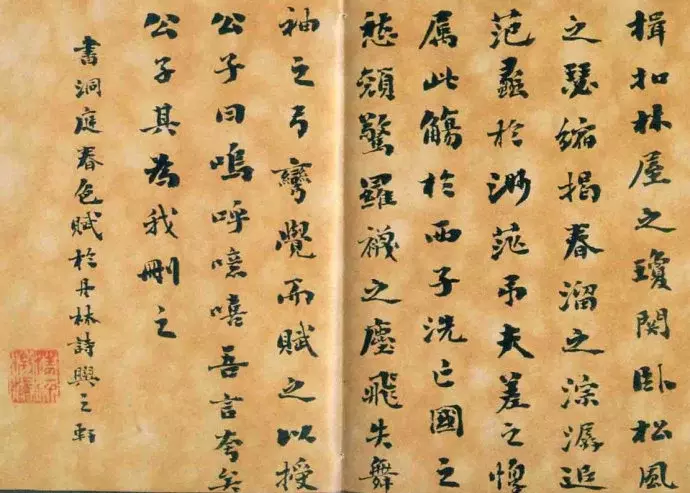 揖扣林屋之瓊関卧松風
之瑟縮揭春溜之淙潺追
范蠡於渺茫吊夫差之惸
属此觴於西子洗亡國之
愁顏驚羅襪之塵飛失舞
袖之弓彎覺而賦之以授
公子曰嗚呼噫嘻吾言夸矣
公子其為我刪之
書洞庭春色賦於丹林詩興之軒